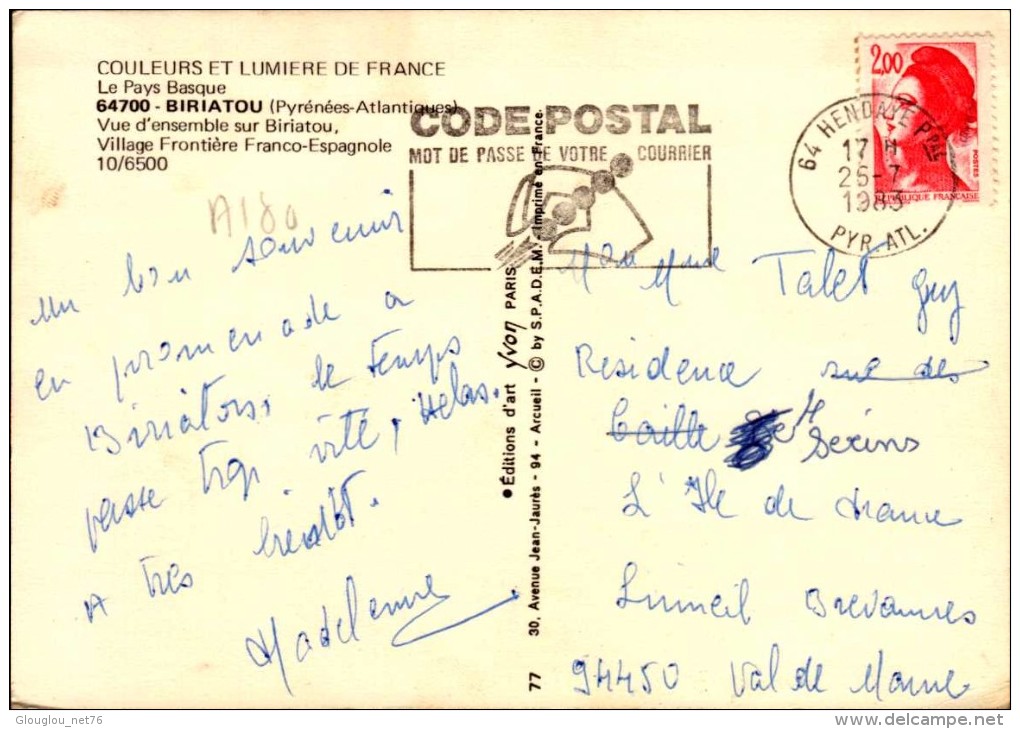 COULEURS ET LUMIERE DE FRANCE
Le Pays Basque
64700 - BIRIATOU (Pyrénées-Atlantiques)
Vue d'ensemble sur Biriatou,
Village Frontière Franco-Espagnole
10/6500
A180
CODE POSTAL
MOT DE PASSE DE VOTRE COURRIER
2,00
POSTES
REPUBLIQUE FRANCAISE
64 HENDAYE PPAL
17 H
26-7
1983
PYR ATL.
un bon souvenir
en promenade a
Biriatou, le temps
passe trop vite, Helas.
A tres bientôt.
Madeleine
●Éditions d'art Yvon PARIS
30, Avenue Jean-Jaurès - 94 - Arcueil - © by S.P.A.D.E.M. - Imprimé en France.
77
Talet Guy
Residence rue des
Caille 4 Serins
L'Ile de France
Limeil Brevannes
94450 Val de Marne
Glouglou_net76
delcampe.net